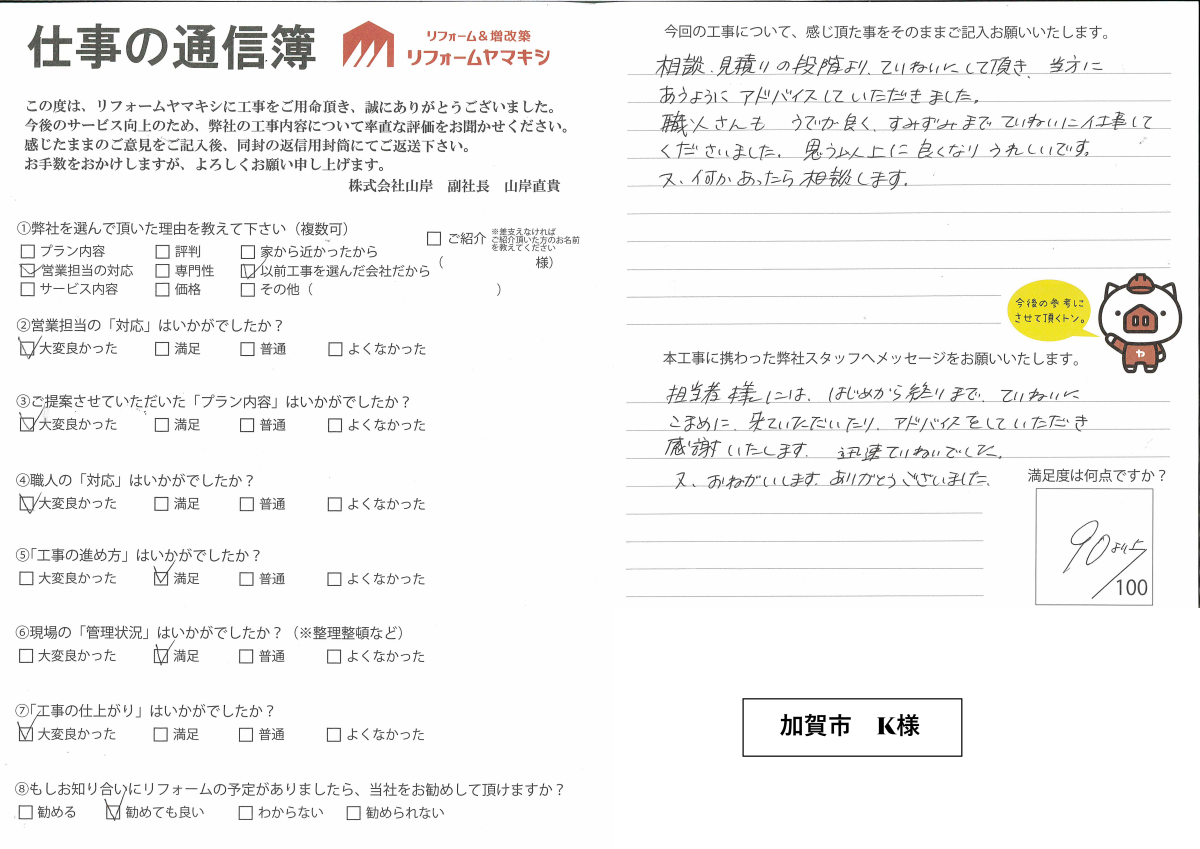 仕事の通信簿
リフォーム＆増改築
リフォームヤマキシ
この度は、リフォームヤマキシに工事をご用命頂き、誠にありがとうございました。
今後のサービス向上のため、弊社の工事内容について率直な評価をお聞かせください。
感じたままのご意見をご記入後、同封の返信用封筒にてご返送下さい。
お手数をおかけしますが、よろしくお願い申し上げます。
株式会社山岸　副社長　山岸直貴
①弊社を選んで頂いた理由を教えて下さい（複数可）
□プラン内容　□評判　□家から近かったから
☑営業担当の対応　□専門性　☑以前工事を選んだ会社だから
□サービス内容　□価格　□その他（　　　）
□ご紹介
※差支えなければ
ご紹介頂いた方のお名前
を教えてください
（　　　様）
②営業担当の「対応」はいかがでしたか？
☑大変良かった　□満足　□普通　□よくなかった
③ご提案させていただいた「プラン内容」はいかがでしたか？
☑大変良かった　□満足　□普通　□よくなかった
④職人の「対応」はいかがでしたか？
☑大変良かった　□満足　□普通　□よくなかった
⑤「工事の進め方」はいかがでしたか？
□大変良かった　☑満足　□普通　□よくなかった
⑥現場の「管理状況」はいかがでしたか？（※整理整頓など）
□大変良かった　☑満足　□普通　□よくなかった
⑦「工事の仕上がり」はいかがでしたか？
☑大変良かった　□満足　□普通　□よくなかった
⑧もしお知り合いにリフォームの予定がありましたら、当社をお勧めして頂けますか？
□勧める　☑勧めても良い　□わからない　□勧められない
今回の工事について、感じ頂た事をそのままご記入お願いいたします。
相談、見積りの段階より、ていねいにして頂き、当方に
あうように アドバイスしていただきました。
職人さんも うでが良く、すみずみまで ていねいに仕事して
くださいました。 思う以上に 良くなり うれしいです。
又、何かあったら 相談します。
今後の参考に
させて頂くトン。
ヤ
本工事に携わった弊社スタッフへメッセージをお願いいたします。
担当者 様には、はじめから終りまで、ていねいに
こまめに、来ていただいたり、アドバイスをしていただき
感謝いたします。 迅速ていねいでした。
又、おねがいします。ありがとうございました。
満足度は何点ですか？
90
/100
加賀市　K様